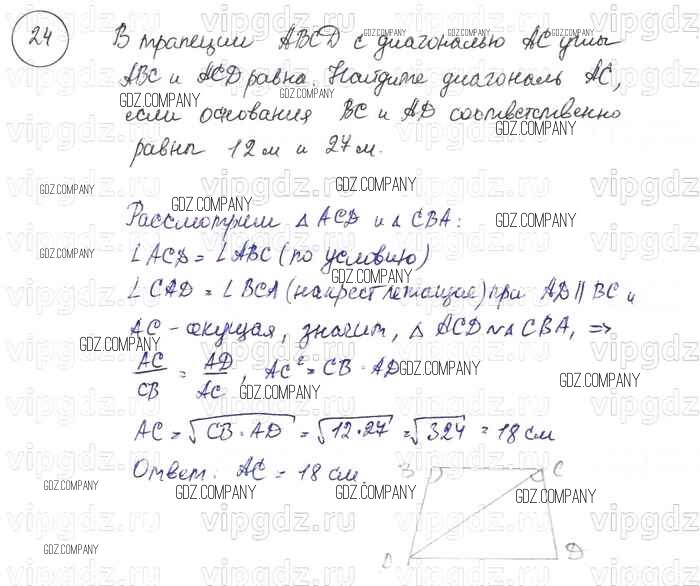 24
В трапеции ABCD с диагональю AC углы
ABC и ACD равны. Найдите диагональ AC,
если основания BC и AD соответственно
равны 12 м и 27 м.
Рассмотрим △ ACD и △ CBA:
∠ ACD = ∠ ABC (по условию)
∠ CAD = ∠ BCA (накрест лежащие) при AD ∥ BC и
AC - секущая, значит, △ ACD ~ △ CBA, =>
AC/CB = AD/AC, AC² = CB · AD
AC = √CB · AD = √12 · 27 = √324 = 18 см
Ответ: AC = 18 см
B C
D
GDZ.COMPANY
vipgdz.ru